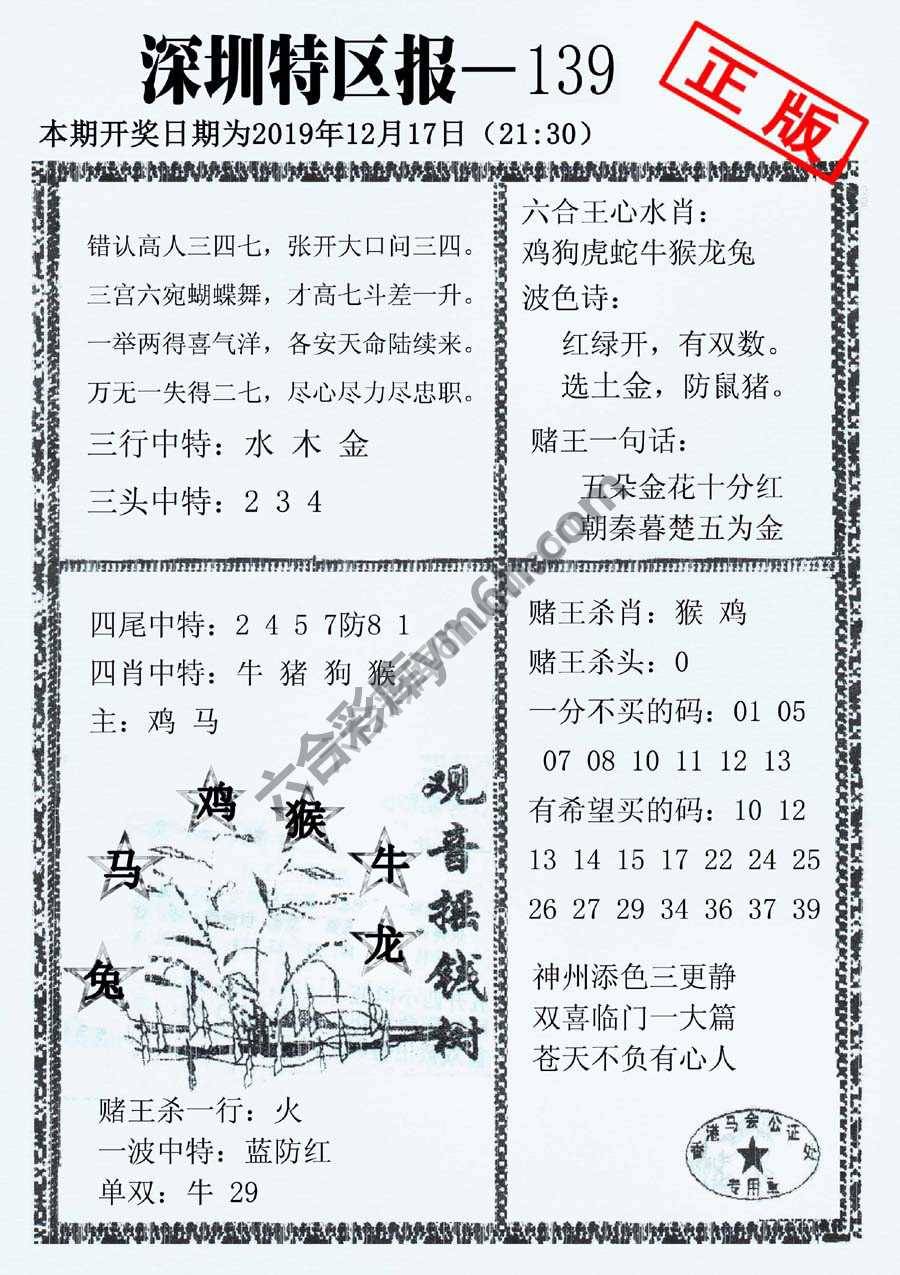 深圳特区报—139
正版
本期开奖日期为2019年12月17日（21:30）
错认高人三四七，张开大口问三四。
三宫六宛蝴蝶舞，才高七斗差一升。
一举两得喜气洋，各安天命陆续来。
万无一失得二七，尽心尽力尽忠职。
三行中特：水 木 金
三头中特：2 3 4
六合王心水肖：
鸡狗虎蛇牛猴龙兔
波色诗：
红绿开，有双数。
选土金，防鼠猪。
赌王一句话：
五朵金花十分红
朝秦暮楚五为金
四尾中特：2 4 5 7防8 1
四肖中特：牛 猪 狗 猴
主：鸡 马
鸡
猴
马
牛
龙
兔
观音摇钱树
赌王杀一行：火
一波中特：蓝防红
单双：牛 29
赌王杀肖：猴 鸡
赌王杀头：0
一分不买的码：01 05
07 08 10 11 12 13
有希望买的码：10 12
13 14 15 17 22 24 25
26 27 29 34 36 37 39
神州添色三更静
双喜临门一大篇
苍天不负有心人
香港马会公证处
六合彩库